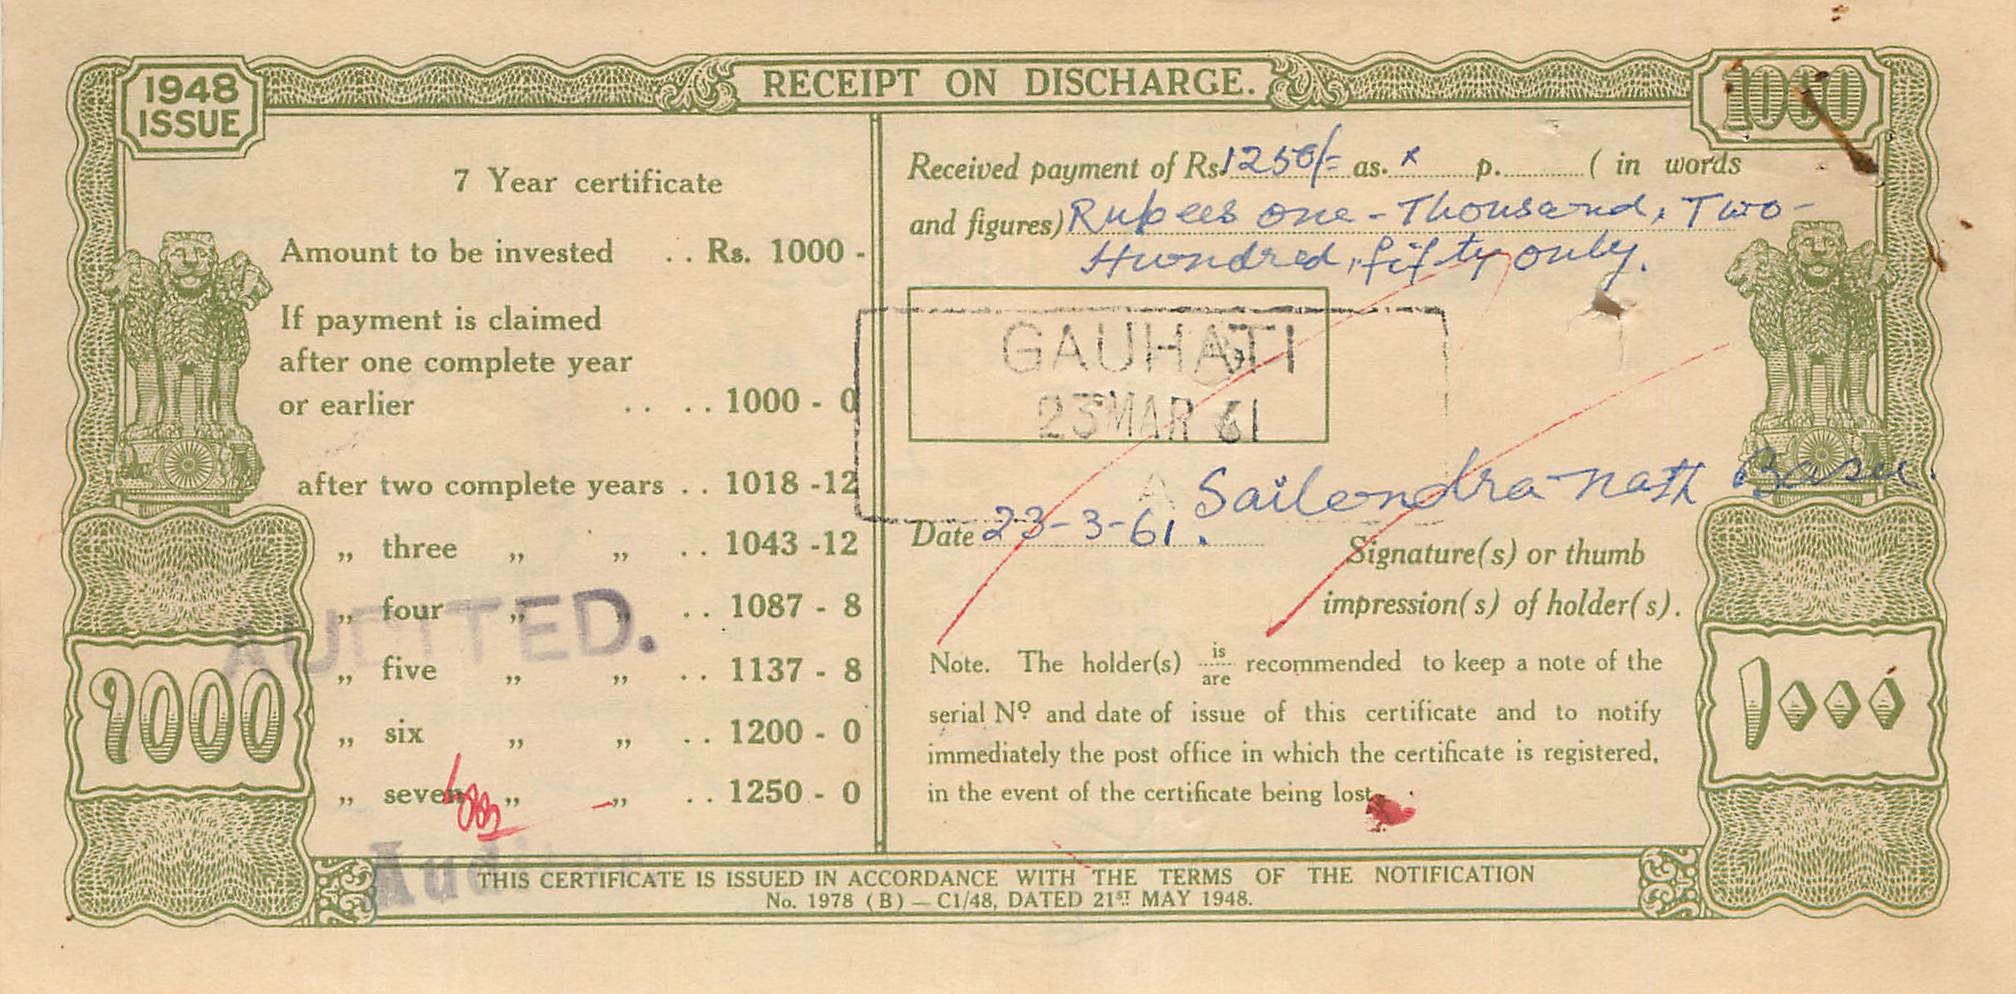 1948
ISSUE
RECEIPT ON DISCHARGE.
1000
7 Year certificate
Amount to be invested .. Rs. 1000 -
If payment is claimed
after one complete year
or earlier .. .. 1000 - 0
after two complete years .. 1018 -12
„ three „ „ .. 1043 -12
„ four „ „ .. 1087 - 8
„ five „ „ .. 1137 - 8
„ six „ „ .. 1200 - 0
„ seven „ „ .. 1250 - 0
AUDITED.
१000
Received payment of Rs. 1250/- as. x p. ......... ( in words
and figures) Rupees one - Thousand, Two -
Hundred, fifty only.
GAUHATI
23 MAR 61
A
Sailendra nath Basu.
Date 23-3-61.
Signature(s) or thumb
impression(s) of holder(s).
Note. The holder(s) is/are recommended to keep a note of the
serial Nº and date of issue of this certificate and to notify
immediately the post office in which the certificate is registered,
in the event of the certificate being lost
۱۰۰۰
THIS CERTIFICATE IS ISSUED IN ACCORDANCE WITH THE TERMS OF THE NOTIFICATION
No. 1978 (B) — C1/48, DATED 21ST MAY 1948.